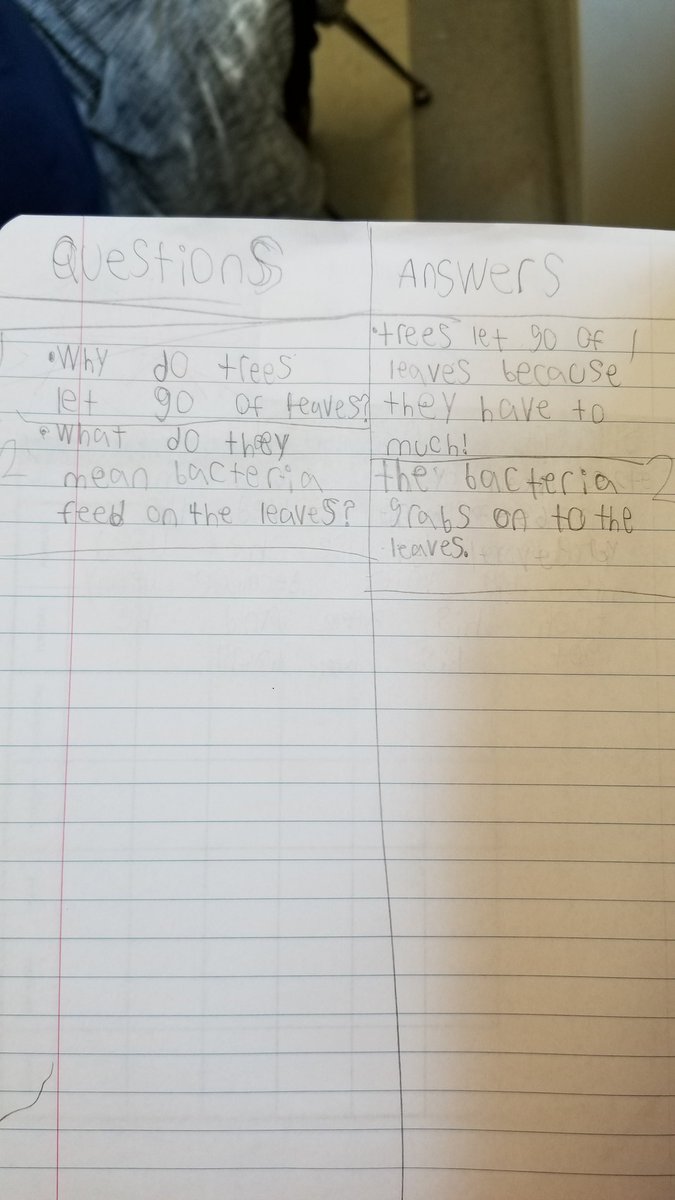 Questions
Answers
1 •Why do trees
let go of leaves?
2 •What do they
mean bacteria
feed on the leaves?
•trees let go of 1
leaves because
they have to
much!
the bacteria 2
grabs on to the
leaves.